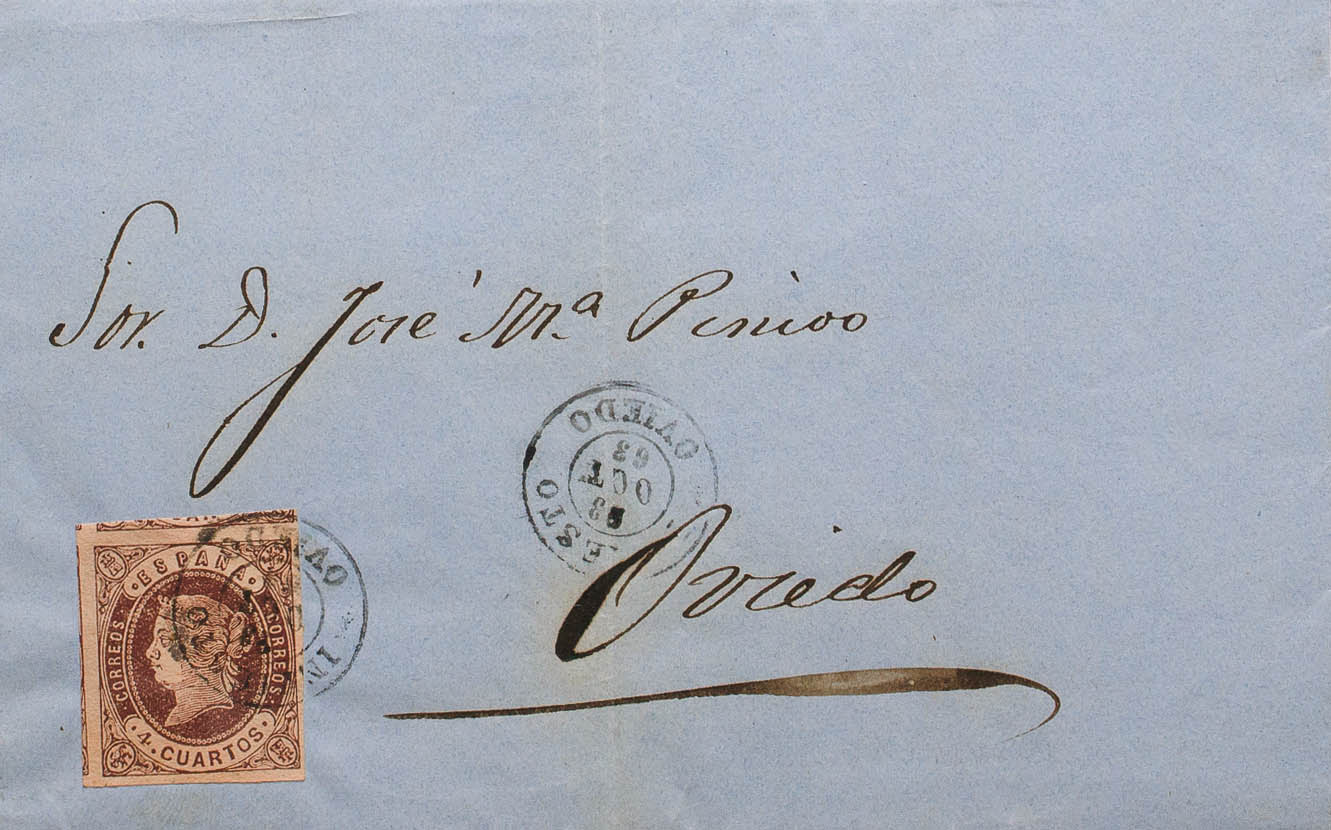 Sor. D. José Mª Pinivo
Oviedo
OVIEDO
63
OCT
ESTO
OVIEDO
IN
ESPAÑA
CORREOS
CORREOS
4. CUARTOS